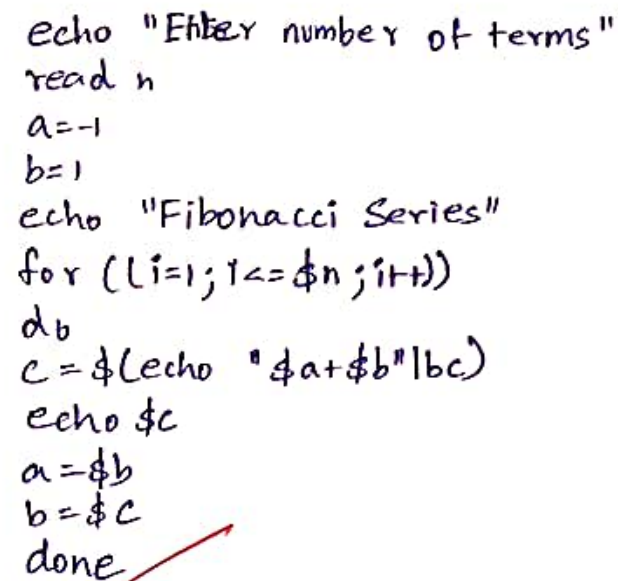 echo "Enter number of terms"
read n
a=-1
b=1
echo "Fibonacci Series"
for ((i=1; i<=$n; i++))
do
c=$(echo "$a+$b"|bc)
echo $c
a=$b
b=$c
done